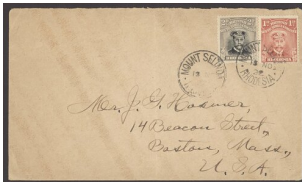 MOUNT SELINDA
RHODESIA
Mrs. J. G. Hosmer,
14 Beacon Street,
Boston, Mass.,
U. S. A.